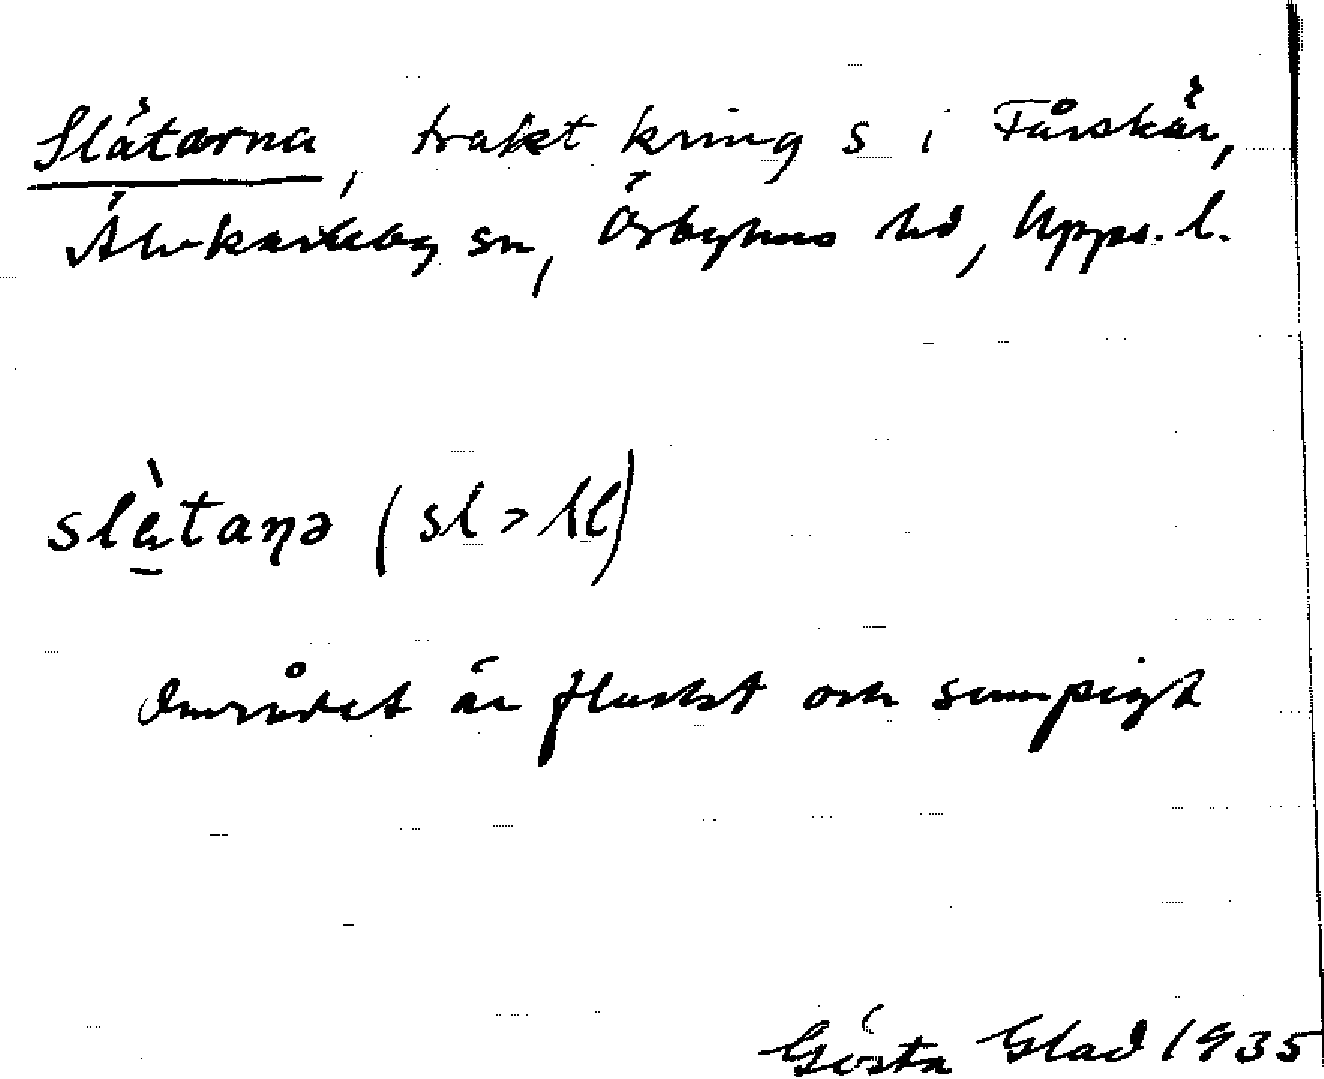 Slätarna, trakt kring S i Fårskär,
Älvkarleby sn, Örbyhus hd, Upps. l.
slæ̀taṇə (sl > ɬl)
Området är flackt och sumpigt
Gösta Glad 1935